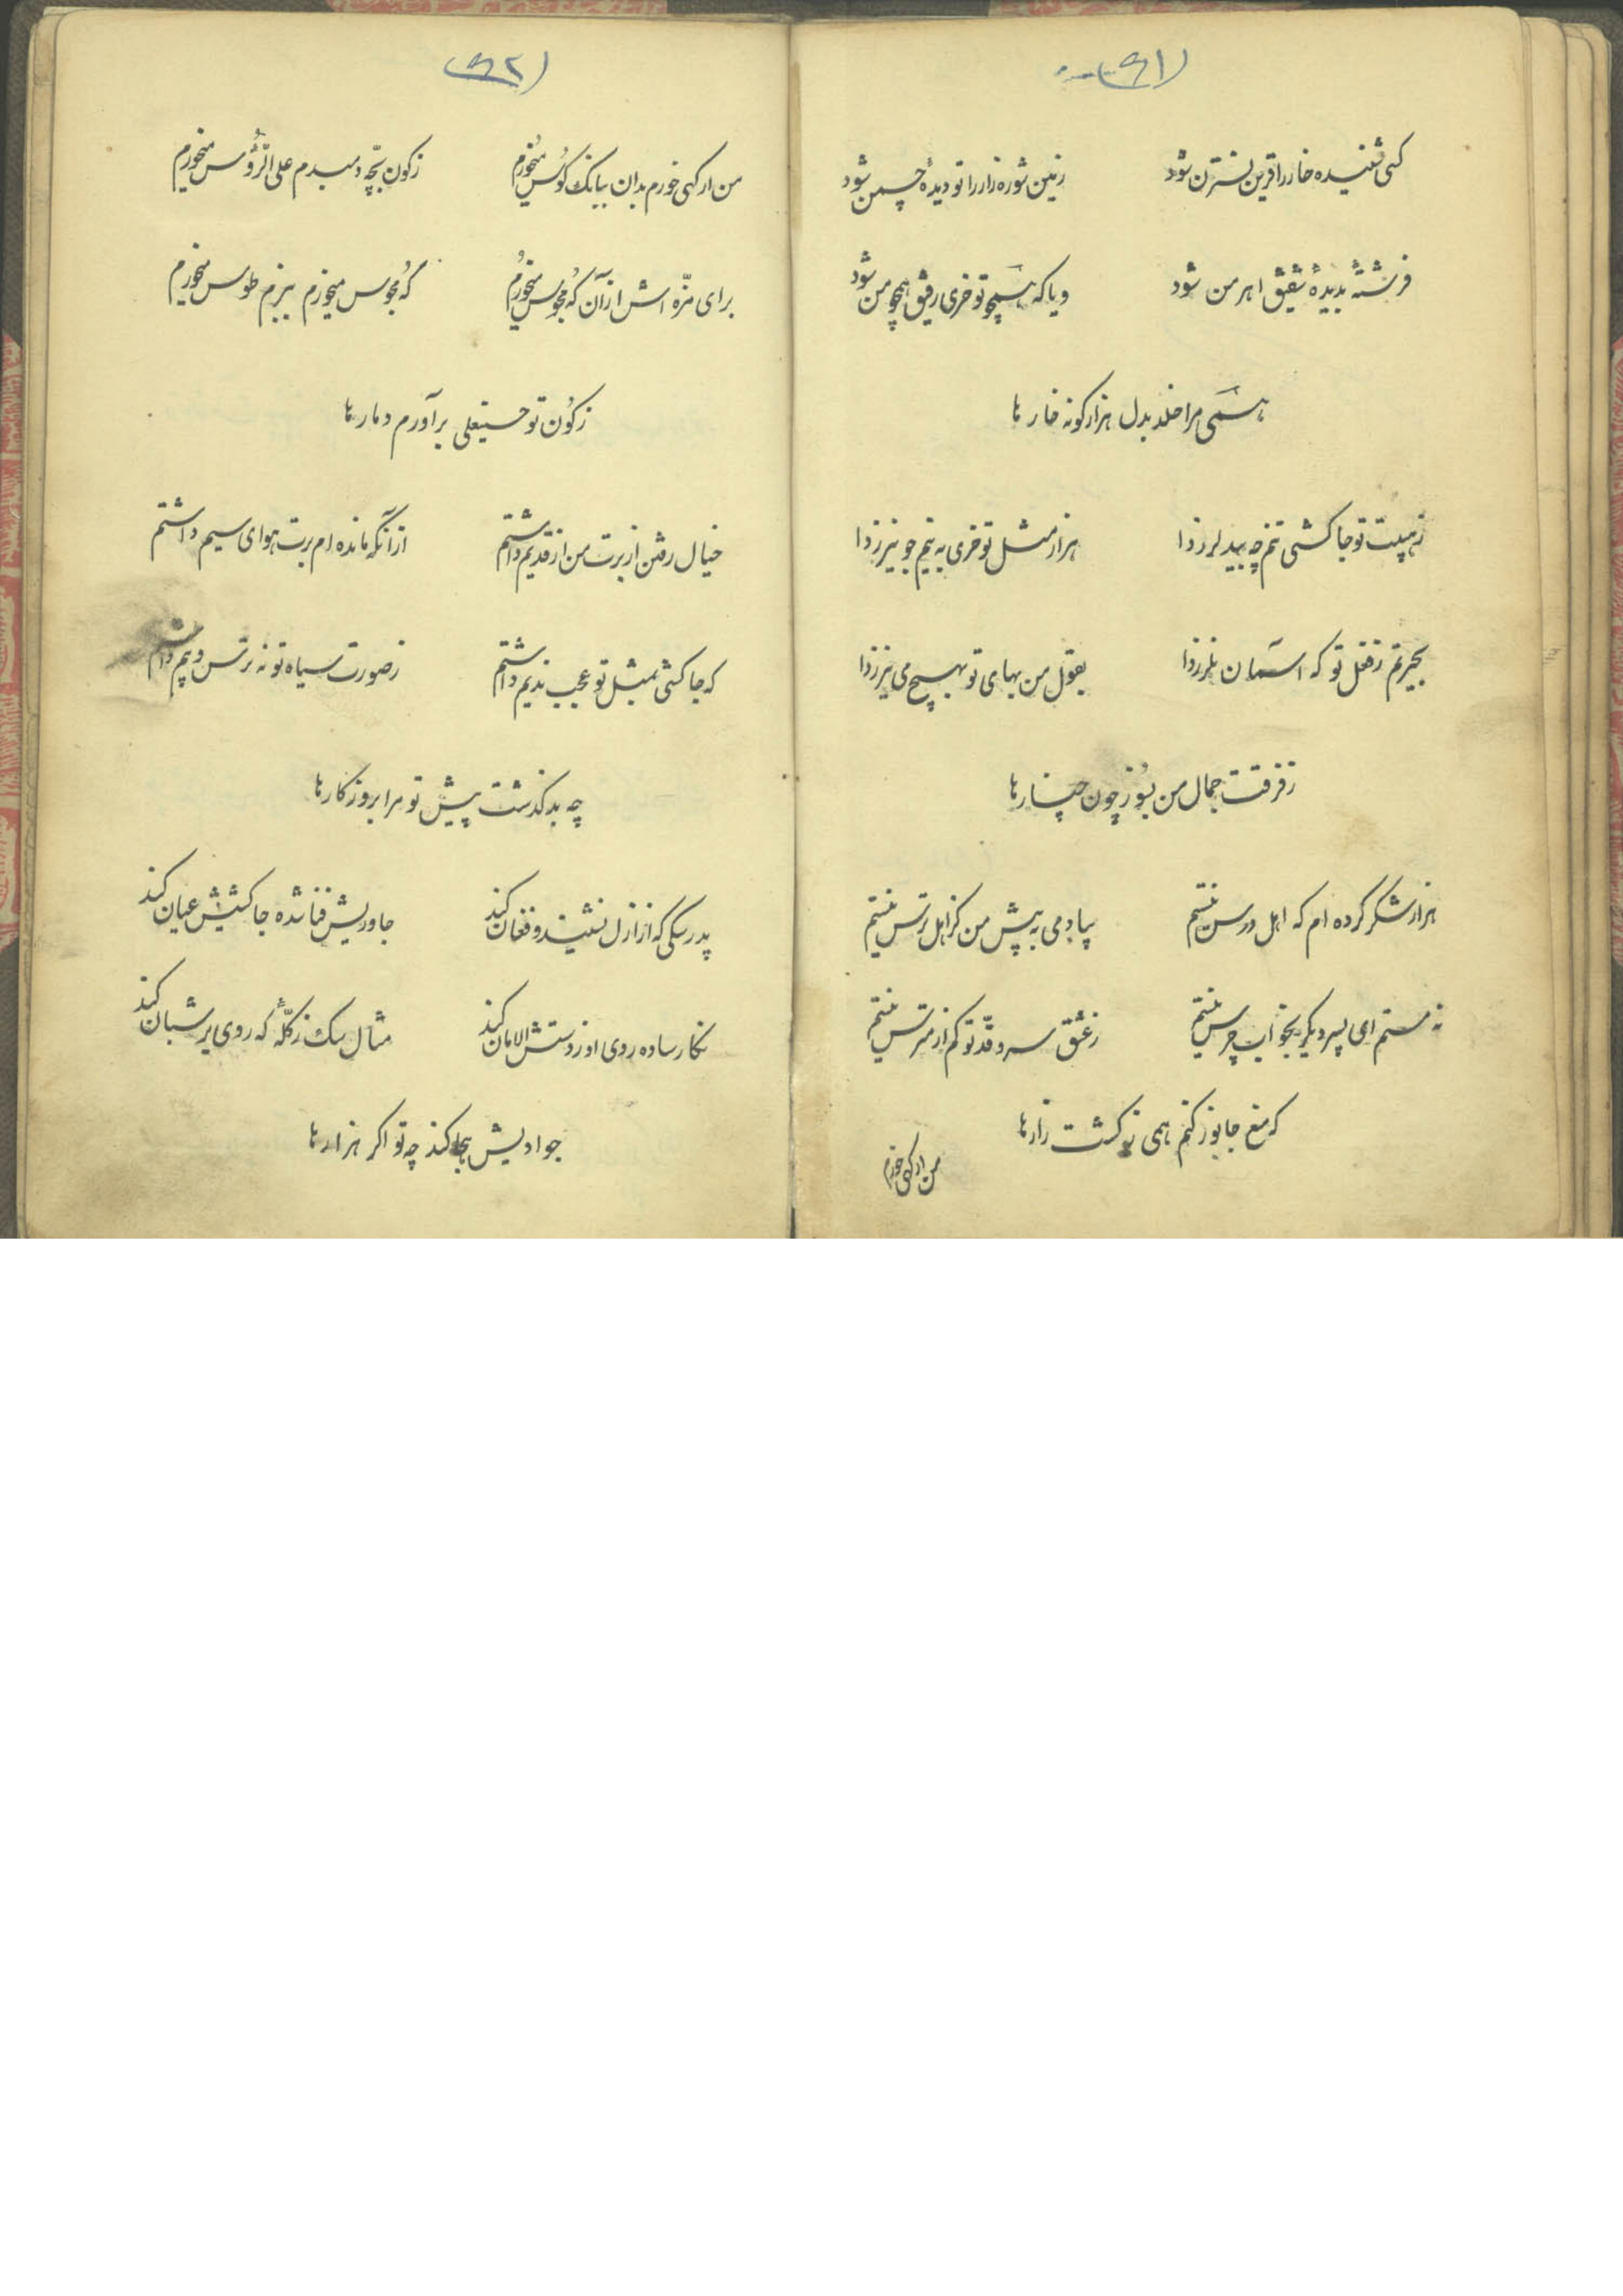 (۹۱)
کسی شنیده خار را قرین نسترن شود زمین شوره زار را تو دیدهٔ چمن شود
فرشتهٔ بدیدهٔ شفیق اهرمن شود و یا که همچو تو خری رفیق همچو من شود
همی مرا خلد بدل هزار کونه خارها
ز هیبت تو جاکشی تنم چه بید لرزدا هزار مثل تو خری به نیم جو نیرزدا
بحیرتم ز فعل تو که آسمان نلرزدا بقول من بهای تو بهیچ می نیرزدا
ز فرقت جمال من بسوز چون چنارها
هزار شکر کرده ام که اهل درس نیستم بیا دمی به پیش من کز اهل ترس نیستم
نه مستم ای پسر دیگر بخواب چرس نیستم ز عشق سرو قدّ تو کم از مترس نیستم
که منع جانور کنم همی ز کشت زارها
من ار کهی خورم
(۹۲)
من ار کهی خورم بدان ببانک کوس میخورم ز کون بچّه دمبدم علی الرّؤس میخورم
برای مزّه اش از آن که مجوس میخورم که مجوس میخورم ببزم طوس میخورم
ز کون تو حسینقلی برآورم دمارها
خیال رفتن از برت من از قدیم داشتم از آنکه مانده ام برت هوای سیم داشتم
که جاکشی بمثل تو عجب ندیم داشتم ز صورت سیاه تو نه ترس و بیم داشتم
چه بد کذشت پیش تو مرا بروزکارها
پدر سکی که از ازل نشیند و فغان کند جاوریش فنا شده جاکشیش عیان کند
نکار ساده روی او ز دستش الامان کند مثال سک ز کلّهٔ که روی بر شبان کند
جوادیش هجا کند چه تو اکر هزارها